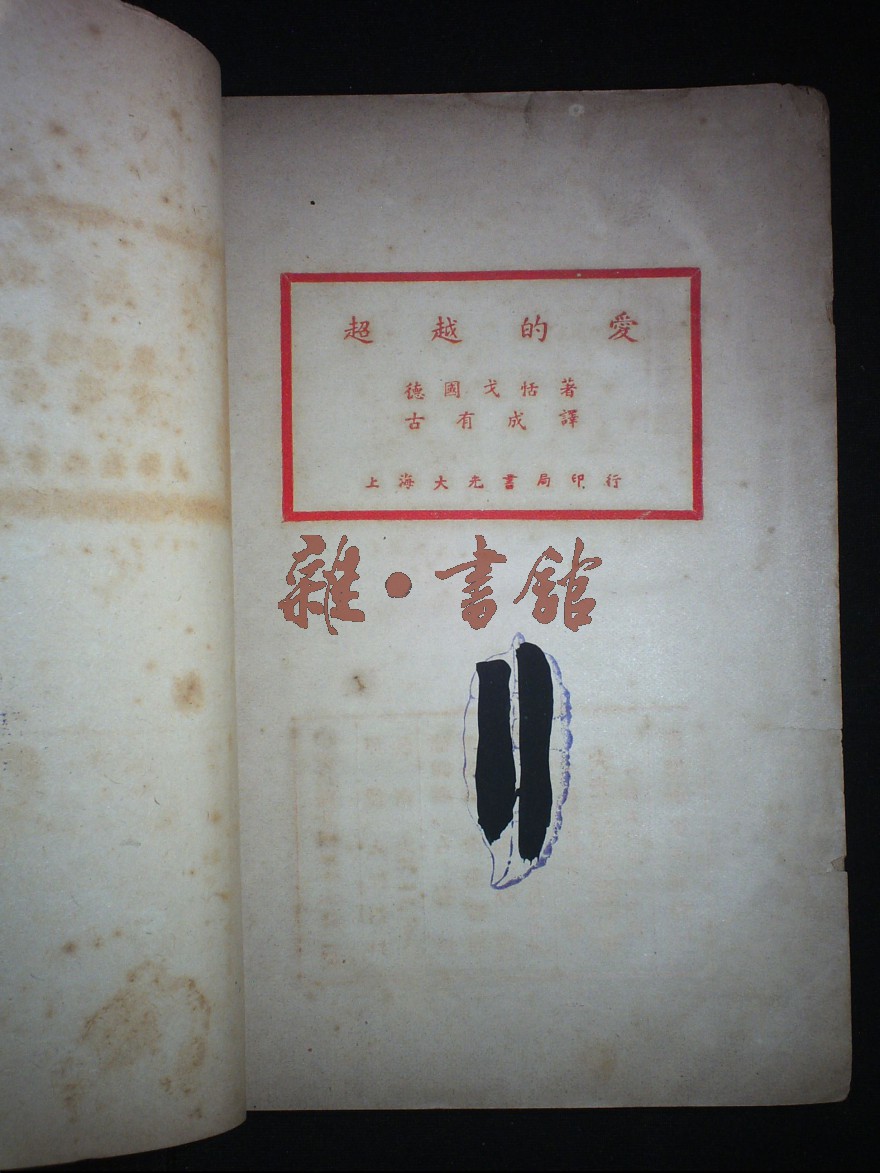 超越的愛
德國戈恬著
古有成譯
上海大光書局印行
雜·書館